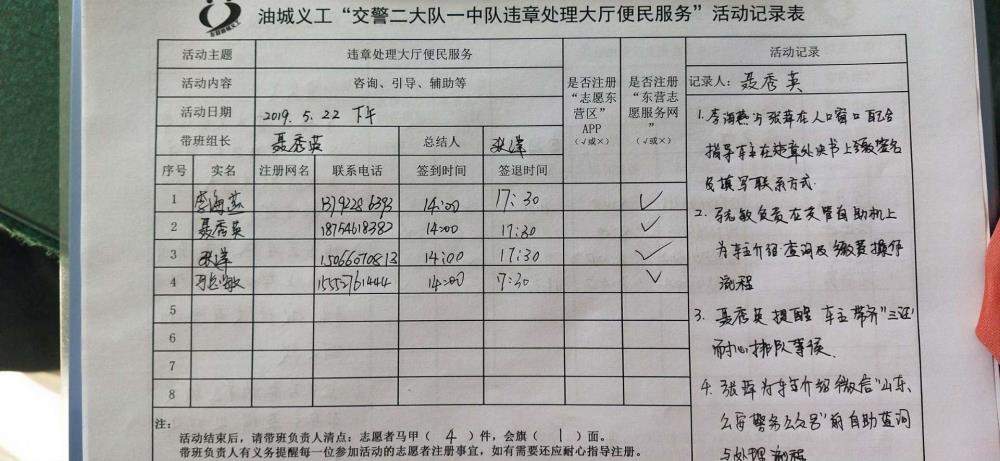 油城义工“交警二大队一中队违章处理大厅便民服务”活动记录表
活动主题 违章处理大厅便民服务
活动内容 咨询、引导、辅助等
活动日期 2019.5.22 下午
带班组长 聂秀英 总结人
是否注册“志愿东营区”APP（√或×）
是否注册“东营志愿服务网”（√或×）
序号 实名 注册网名 联系电话 签到时间 签退时间
1 李海燕 14:00 17:30 ✓
2 聂秀英 18754618382 14:00 17:30 ✓
3 15066070813 14:00 17:30 ✓
4 15552761444 14:00 17:30 ✓
5
6
7
8
注：
活动结束后，请带班负责人清点：志愿者马甲（ 4 ）件，会旗（ 1 ）面。
带班负责人有义务提醒每一位参加活动的志愿者注册事宜，如有需要还应耐心指导注册。
活动记录
记录人：聂秀英
1.李海燕与张萍在入口窗口配合
指导车主在违章处决书上缴签名
及填写联系方式.
2.敏负责在交管自助机上
为车主介绍查询及缴费操作
流程
3.聂秀英提醒车主带齐“三证”
耐心排队等侯.
4.张萍为车主介绍微信“山东、
公安警务公众号”前自助查询
与处理流程